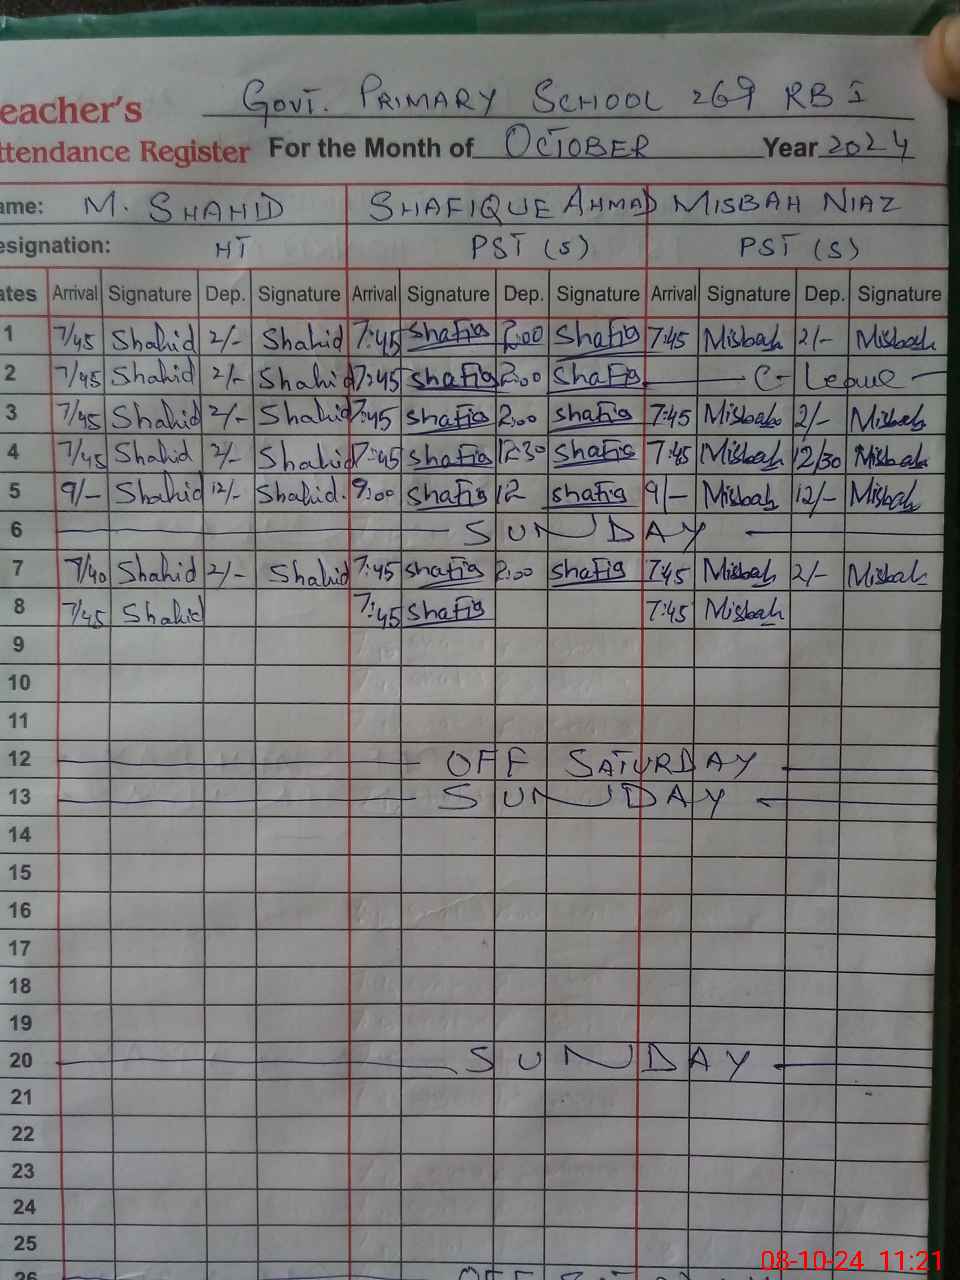 Govt. Primary School 269 RB I
eacher's
ttendance Register For the Month of October Year 2024
ame: M. Shahid Shafique Ahmad Misbah Niaz
esignation: HT PST (S) PST (S)
ates Arrival Signature Dep. Signature Arrival Signature Dep. Signature Arrival Signature Dep. Signature
1 7/45 Shahid 2/- Shahid 7:45 Shafiq 2:00 Shafiq 7:45 Misbah 2/- Misbah
2 7/45 Shahid 2/- Shahid 7:45 Shafiq 2:00 Shafiq C- Leave
3 7/45 Shahid 2/- Shahid 7:45 Shafiq 2:00 Shafiq 7:45 Misbah 2/- Misbah
4 7/45 Shahid 2/- Shahid 7:45 Shafiq 12:30 Shafiq 7:45 Misbah 12/30 Misbah
5 9/- Shahid 12/- Shahid. 9:00 Shafiq 12 Shafiq 9/- Misbah 12/- Misbah
6 SUNDAY
7 7/40 Shahid 2/- Shahid 7:45 Shafiq 2:00 Shafiq 7:45 Misbah 2/- Misbah
8 7/45 Shahid 7:45 Shafiq 7:45 Misbah
9
10
11
12 OFF SATURDAY
13 SUNDAY
14
15
16
17
18
19
20 SUNDAY
21
22
23
24
25
26 OFF
08-10-24 11:21